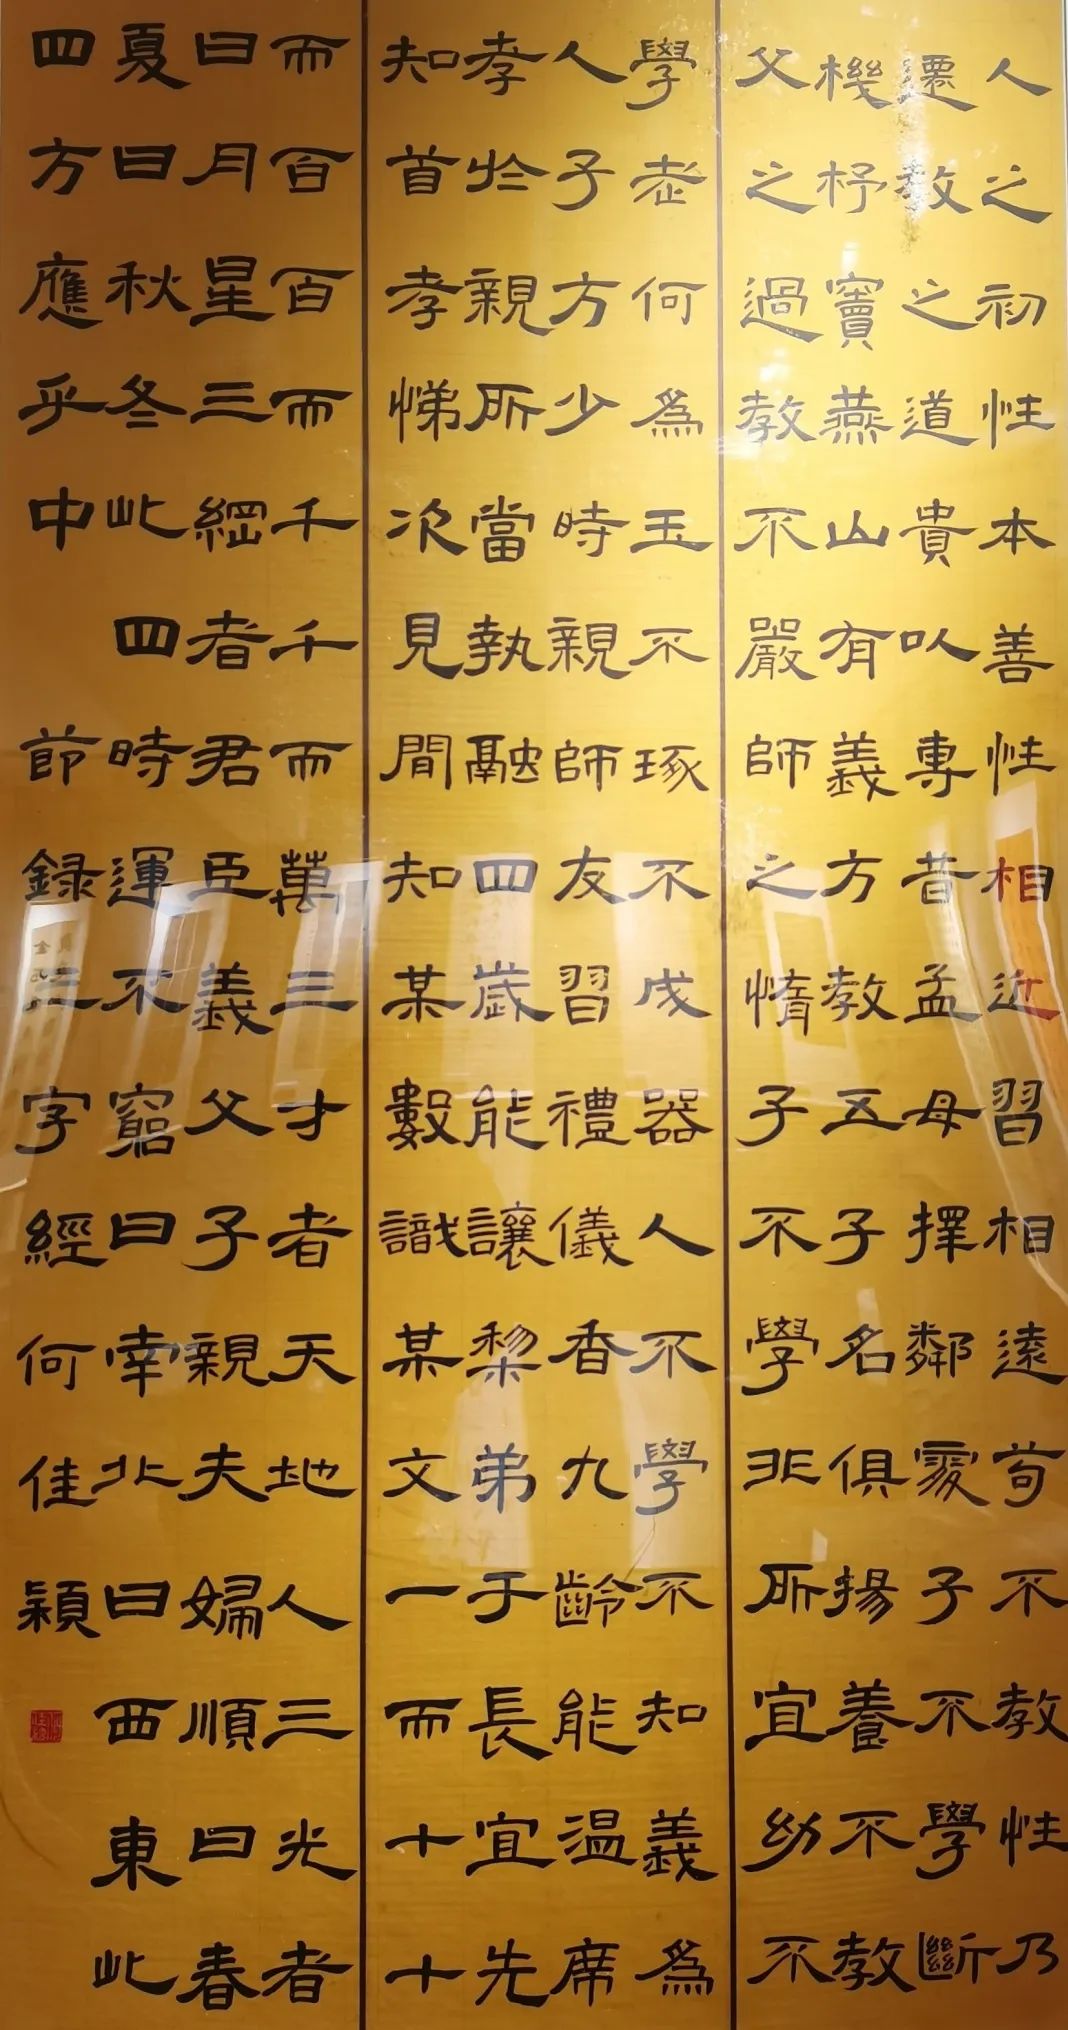 人之初性本善性相近習相遠苟不教性乃
遷教之道貴以專昔孟母擇鄰處子不學斷
機杼竇燕山有義方教五子名俱揚養不教
父之過教不嚴師之惰子不學非所宜幼不
學老何爲玉不琢不成器人不學不知義爲
人子方少時親師友習禮儀香九齡能温席
孝於親所當執融四歲能讓梨弟于長宜先
知首孝悌次見間知某數識某文一而十十
而百百而千千而萬三才者天地人三光者
日月星三綱者君臣義父子親夫婦順曰春
夏曰秋冬此四時運不窮曰南北曰西東此
四方應乎中 節録三字經何佳穎